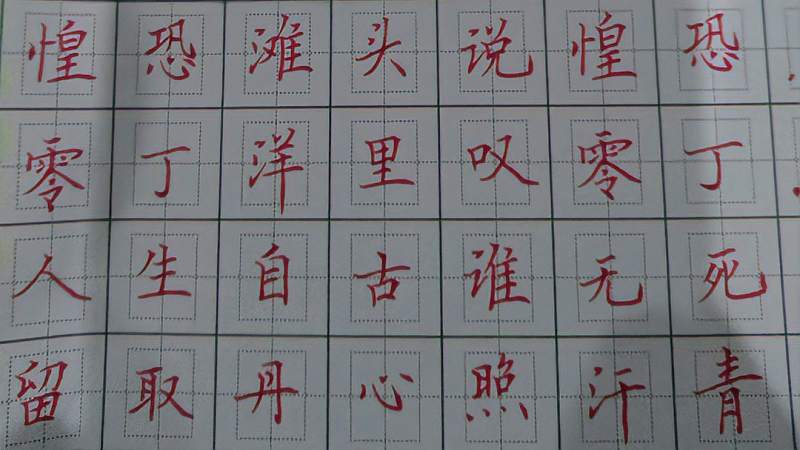 惶恐滩头说惶恐
零丁洋里叹零丁
人生自古谁无死
留取丹心照汗青